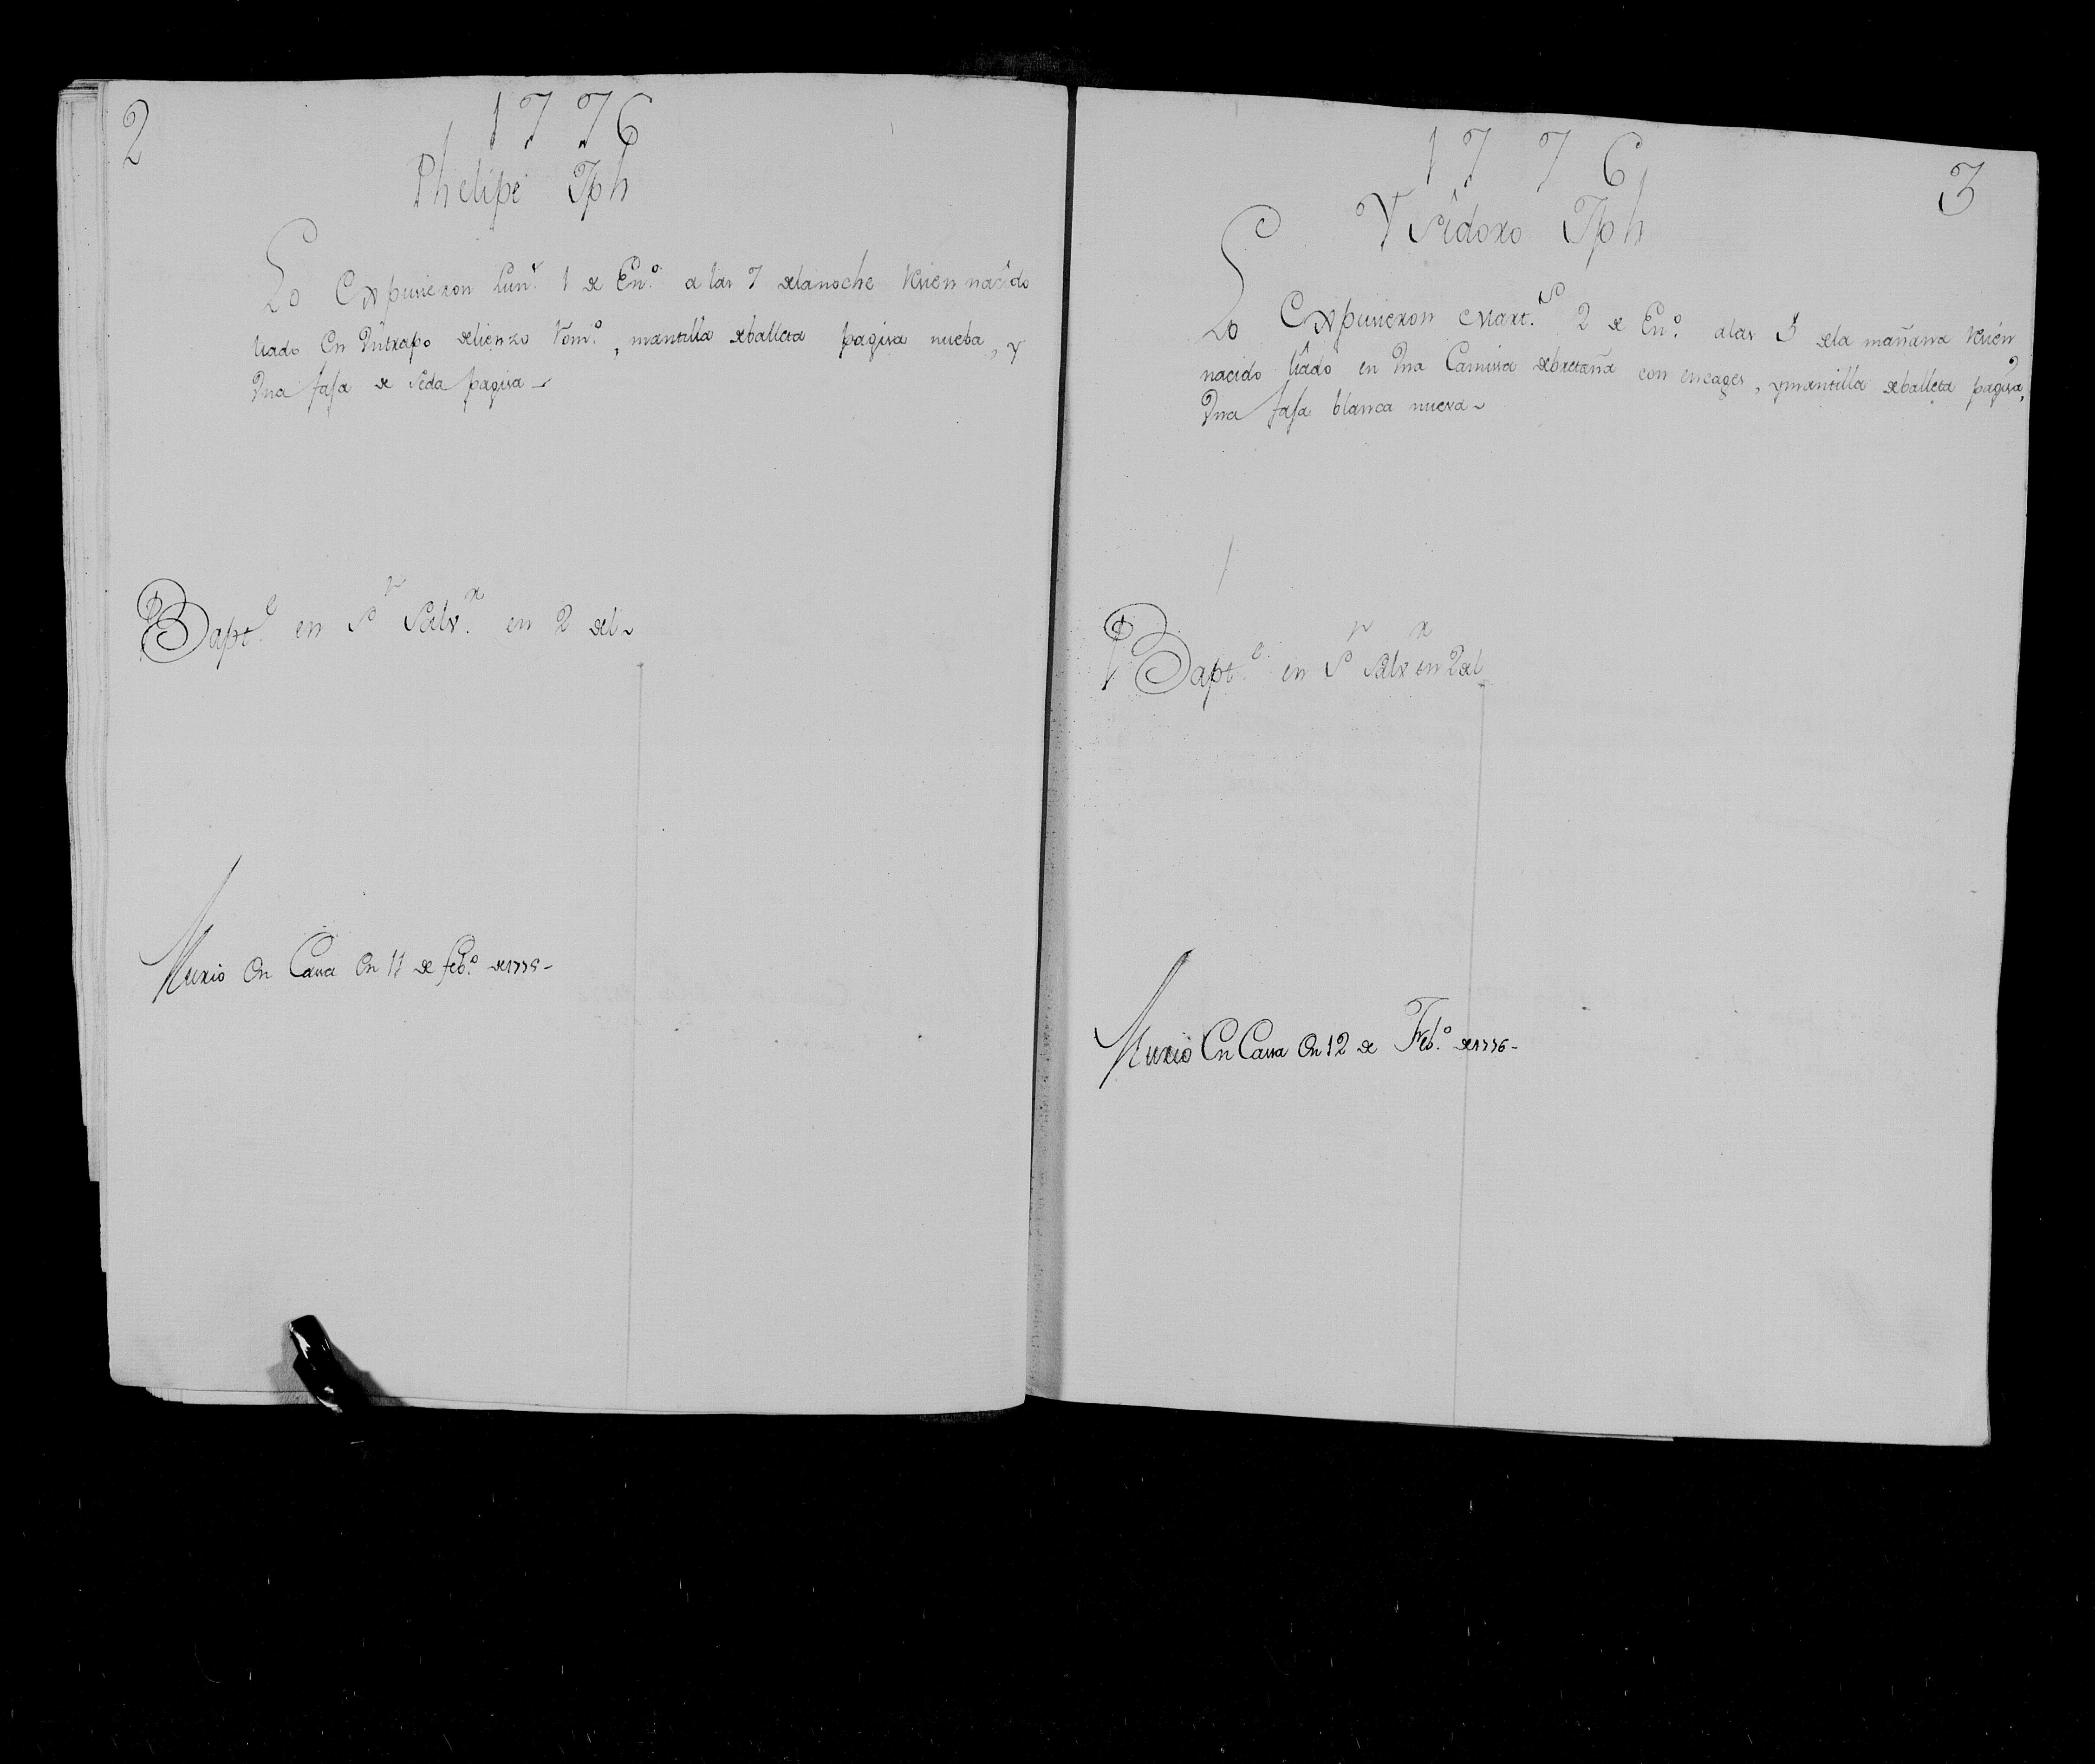 2
1776
Phelipe Jph
Lo Expusieron Lun.s 1 de En.o a las 7 dela noche Resien nacido
liado en Vntrapo delienzo Rom.o, mantilla deballeta pagisa nueba, y
Vna fasa de seda pagisa
Bapt.e en S.n Salv.r en 2 del
Murio en Casa en 11 de feb.o de 1776
1776
3
Ysidoro Jph
Lo Expusieron Mart.s 2 de En.o alas 5 dela mañana Resien
nacido liado en Vna Camisa debretaña con encages, ymantilla deballeta pagisa, y
Vna fasa blanca nueva
Bapt.e en S.n Salv.r en 2 del
Murio En Casa en 12 de Feb.o de 1776